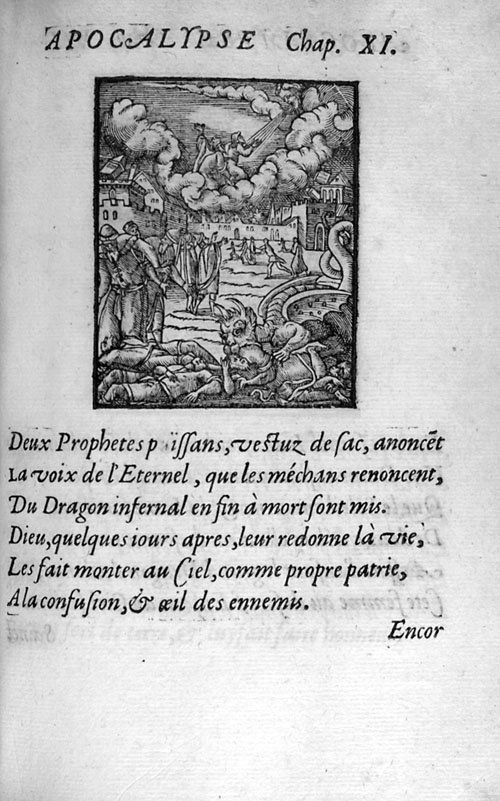 APOCALYPSE Chap. XI.
Deux Prophetes p ïssans, vestuz de sac, anoncẽt
La voix de l'Eternel, que les méchans renoncent,
Du Dragon infernal en fin à mort sont mis.
Dieu, quelques iours apres, leur redonne là vie,
Les fait monter au Ciel, comme propre patrie,
A la confusion, & œil des ennemis.
Encor